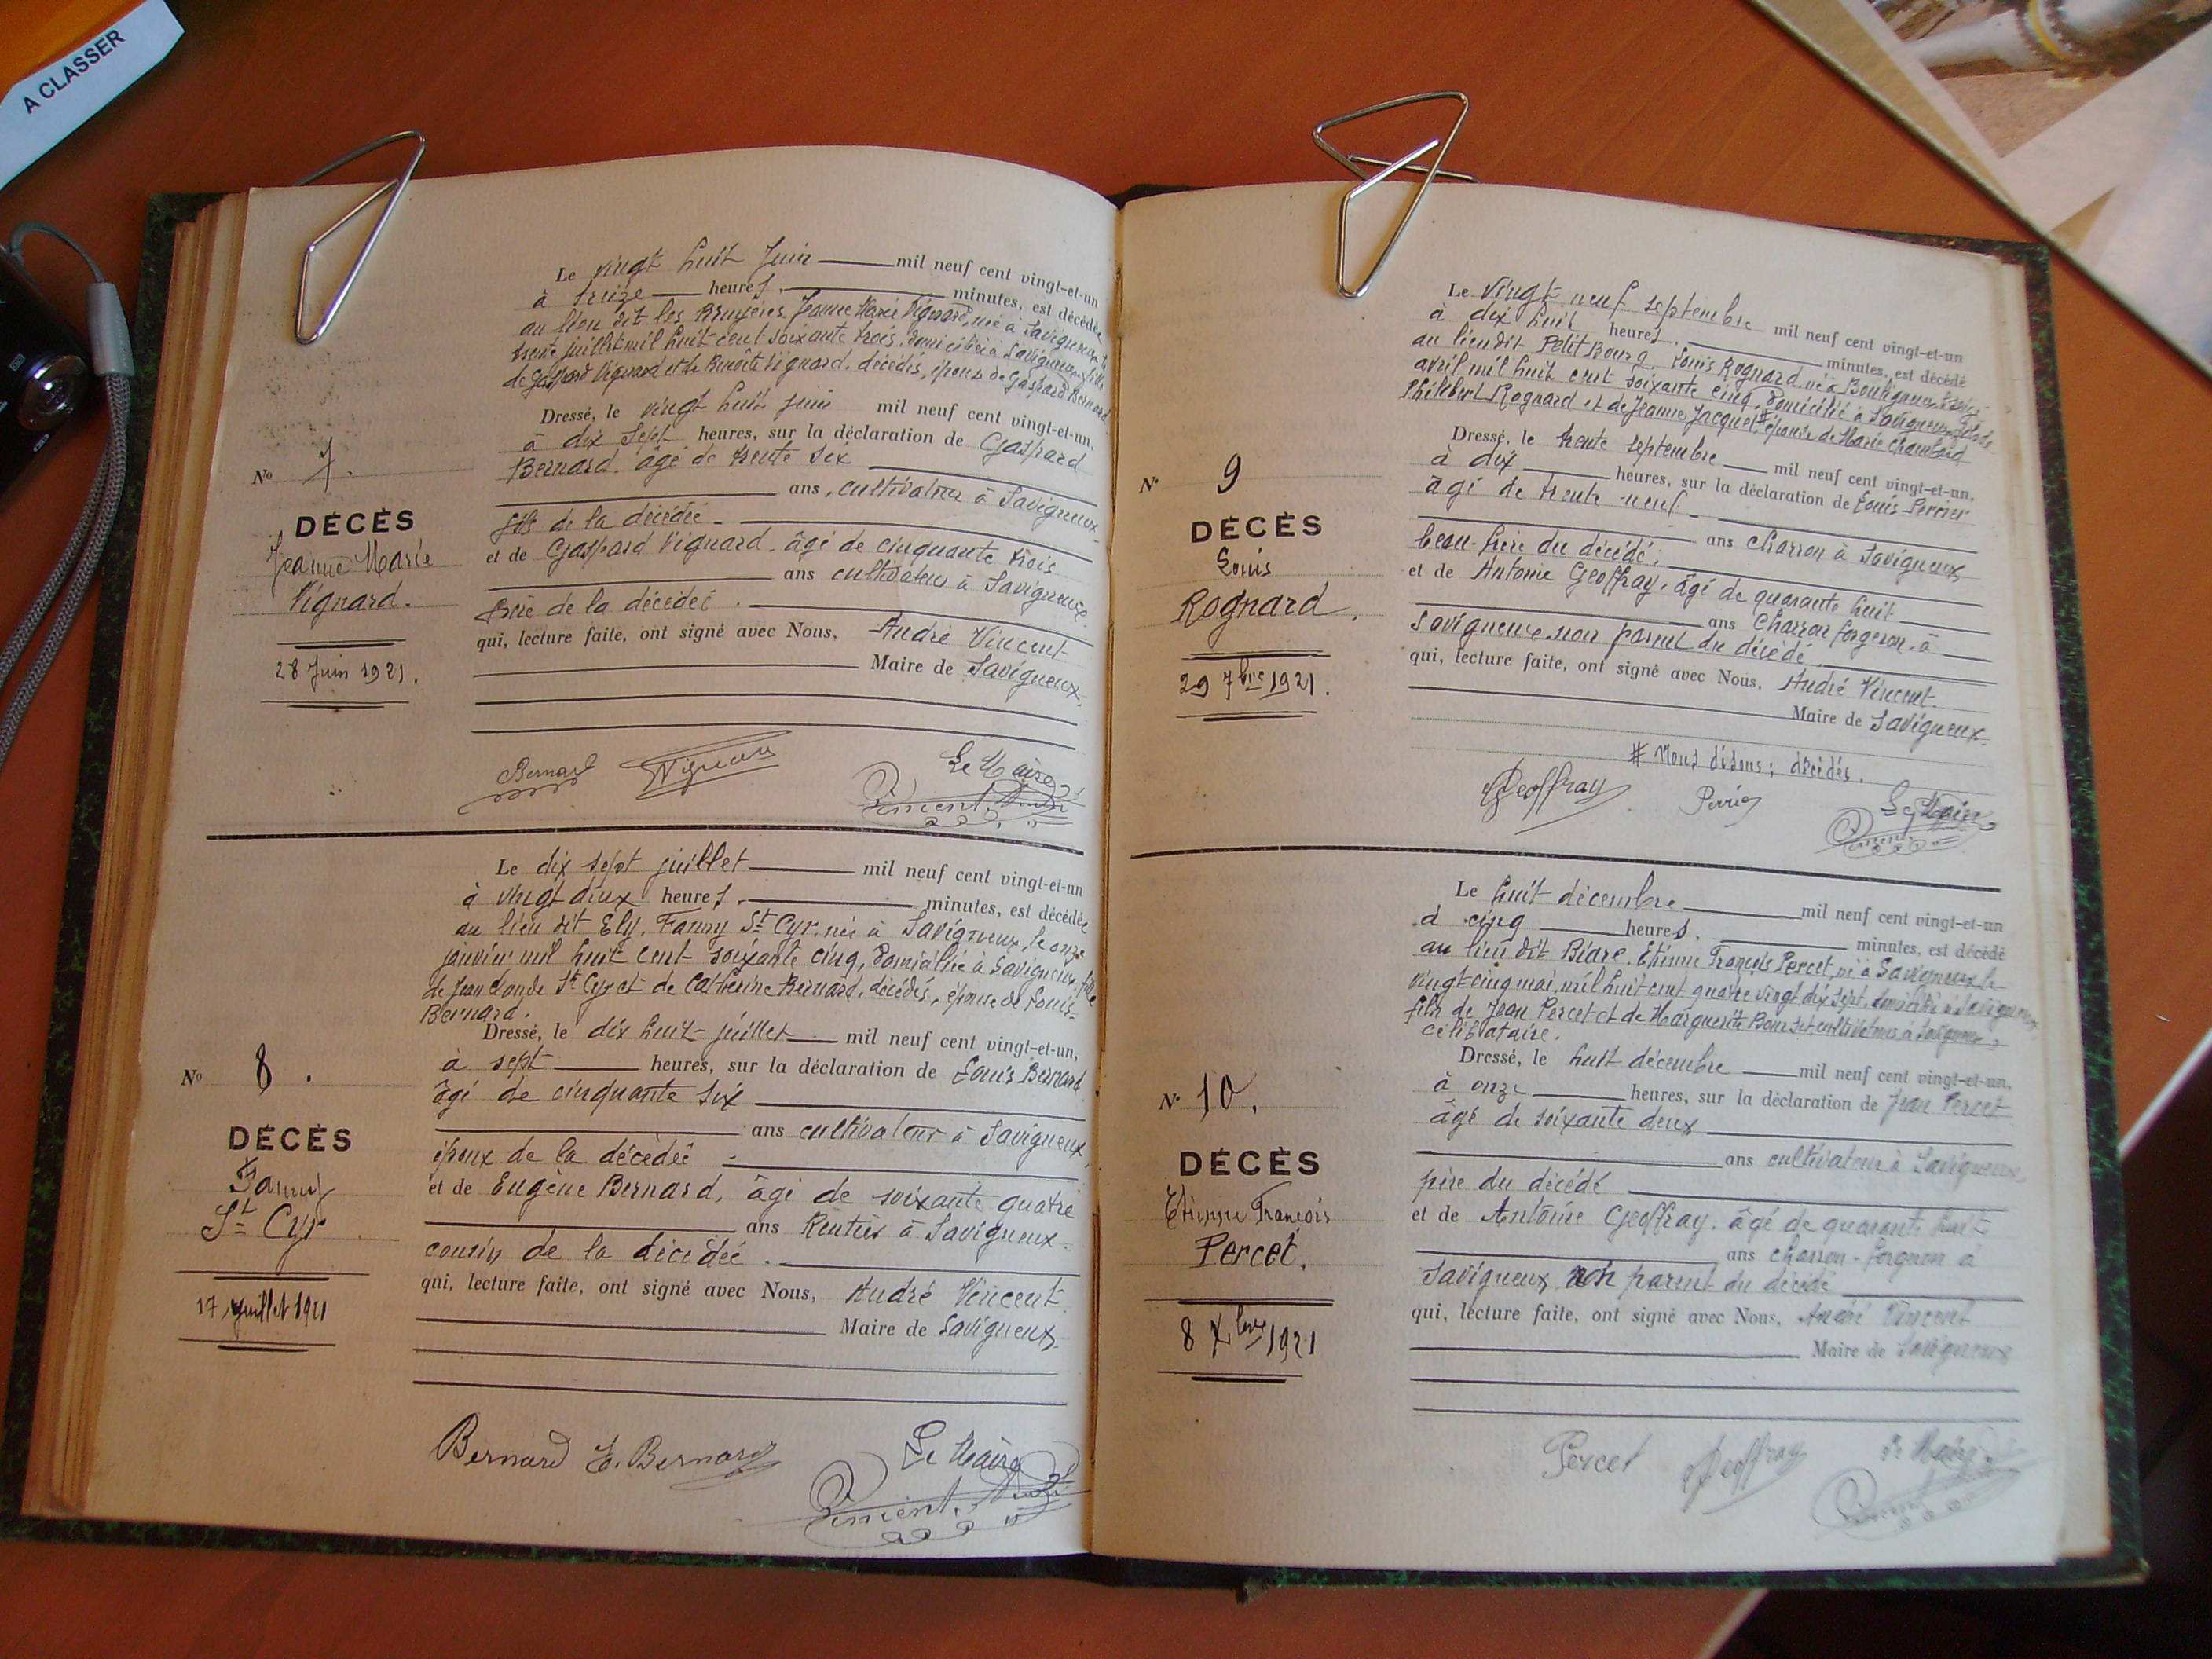 A CLASSER
Le vingt huit Juin mil neuf cent vingt-et-un
à treize heures. minutes, est décédée
au lieu dit les Bruyères, Jeanne Marie Vignard, née à Savigneux le
trente juillet mil huit cent soixante trois, domiciliée à Savigneux, fille
de Gaspard Vignard et de Benoîte Vignard, décédés, épouse de Gaspard Bernard
Dressé, le vingt huit juin mil neuf cent vingt-et-un,
à dix sept heures, sur la déclaration de Gaspard
Bernard. âgé de trente six
ans, cultivateur à Savigneux
fils de la décédée
et de Gaspard Vignard. âgé de cinquante trois
ans cultivateur à Savigneux
frère de la décédée.
qui, lecture faite, ont signé avec Nous, André Vincent
Maire de Savigneux.
No 7.
DÉCÈS
Jeanne Marie
Vignard.
28 Juin 1921.
Bernard Vignard Le Maire
Vincent André
Le dix sept juillet mil neuf cent vingt-et-un
à vingt deux heures. minutes, est décédée
au lieu dit Ely, Fanny St Cyr, née à Savigneux, le onze
janvier mil huit cent soixante cinq, domiciliée à Savigneux, fille
de Jean Claude St Cyr et de Catherine Bernard, décédés, épouse de Louis
Bernard.
Dressé, le dix huit juillet mil neuf cent vingt-et-un,
à sept heures, sur la déclaration de Louis Bernard
âgé de cinquante six
ans cultivateur à Savigneux,
époux de la décédée
et de Eugène Bernard, âgé de soixante quatre
ans Rentier à Savigneux.
cousin de la décédée.
qui, lecture faite, ont signé avec Nous, André Vincent
Maire de Savigneux.
No 8.
DÉCÈS
Fanny
St Cyr
17 juillet 1921
Bernard E. Bernard Le Maire
Vincent André
Le vingt neuf septembre mil neuf cent vingt-et-un
à dix huit heures. minutes, est décédé
au lieu dit Petit Bourg, Louis Rognard, né à Bouligneux
avril mil huit cent soixante cinq, domicilié à Savigneux, fils de
Philibert Rognard et de Jeanne Jacquet # époux de Marie Chambard
Dressé, le trente septembre mil neuf cent vingt-et-un,
à dix heures, sur la déclaration de Louis Perrier
âgé de trente neuf
ans charron à Savigneux
beau-frère du décédé;
et de Antoine Geoffray, âgé de quarante huit
ans Charron forgeron à
Savigneux non parent du décédé
qui, lecture faite, ont signé avec Nous, André Vincent
Maire de Savigneux.
# Nous disons; décédés.
No 9
DÉCÈS
Louis
Rognard.
29 7bre 1921.
Geoffray Perrier Le Maire
Vincent
Le huit décembre mil neuf cent vingt-et-un
à cinq heures. minutes, est décédé
au lieu dit Biare. Etienne François Percet, né à Savigneux le
vingt cinq mai, mil huit cent quatre vingt dix sept, domicilié à Savigneux,
fils de Jean Percet et de Marguerite cultivateurs à Savigneux,
célibataire.
Dressé, le huit décembre mil neuf cent vingt-et-un,
à onze heures, sur la déclaration de Jean Percet
âgé de soixante deux
ans cultivateur à Savigneux,
père du décédé
et de Antoine Geoffray. âgé de quarante huit
ans charron-forgeron à
Savigneux, non parent du décédé
qui, lecture faite, ont signé avec Nous, André Vincent
Maire de Savigneux
No 10.
DÉCÈS
Etienne François
Percet.
8 Xbre 1921
Percet Geoffray Le Maire
Vincent